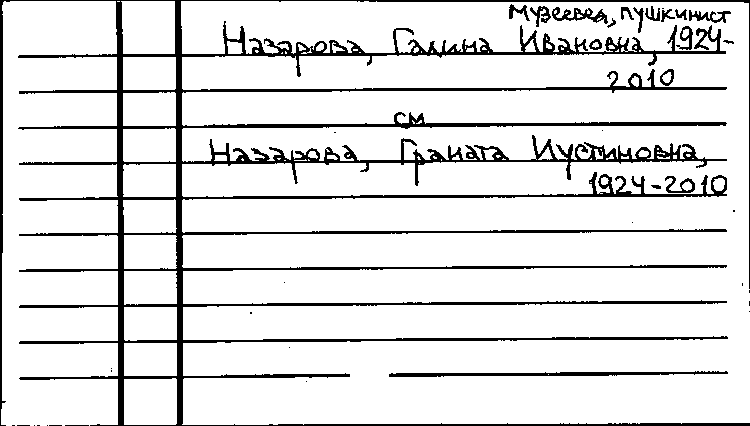 Музеевед, пушкинист
Назарова, Галина Ивановна, 1924-
2010
см
Назарова, Граната Иустиновна,
1924-2010